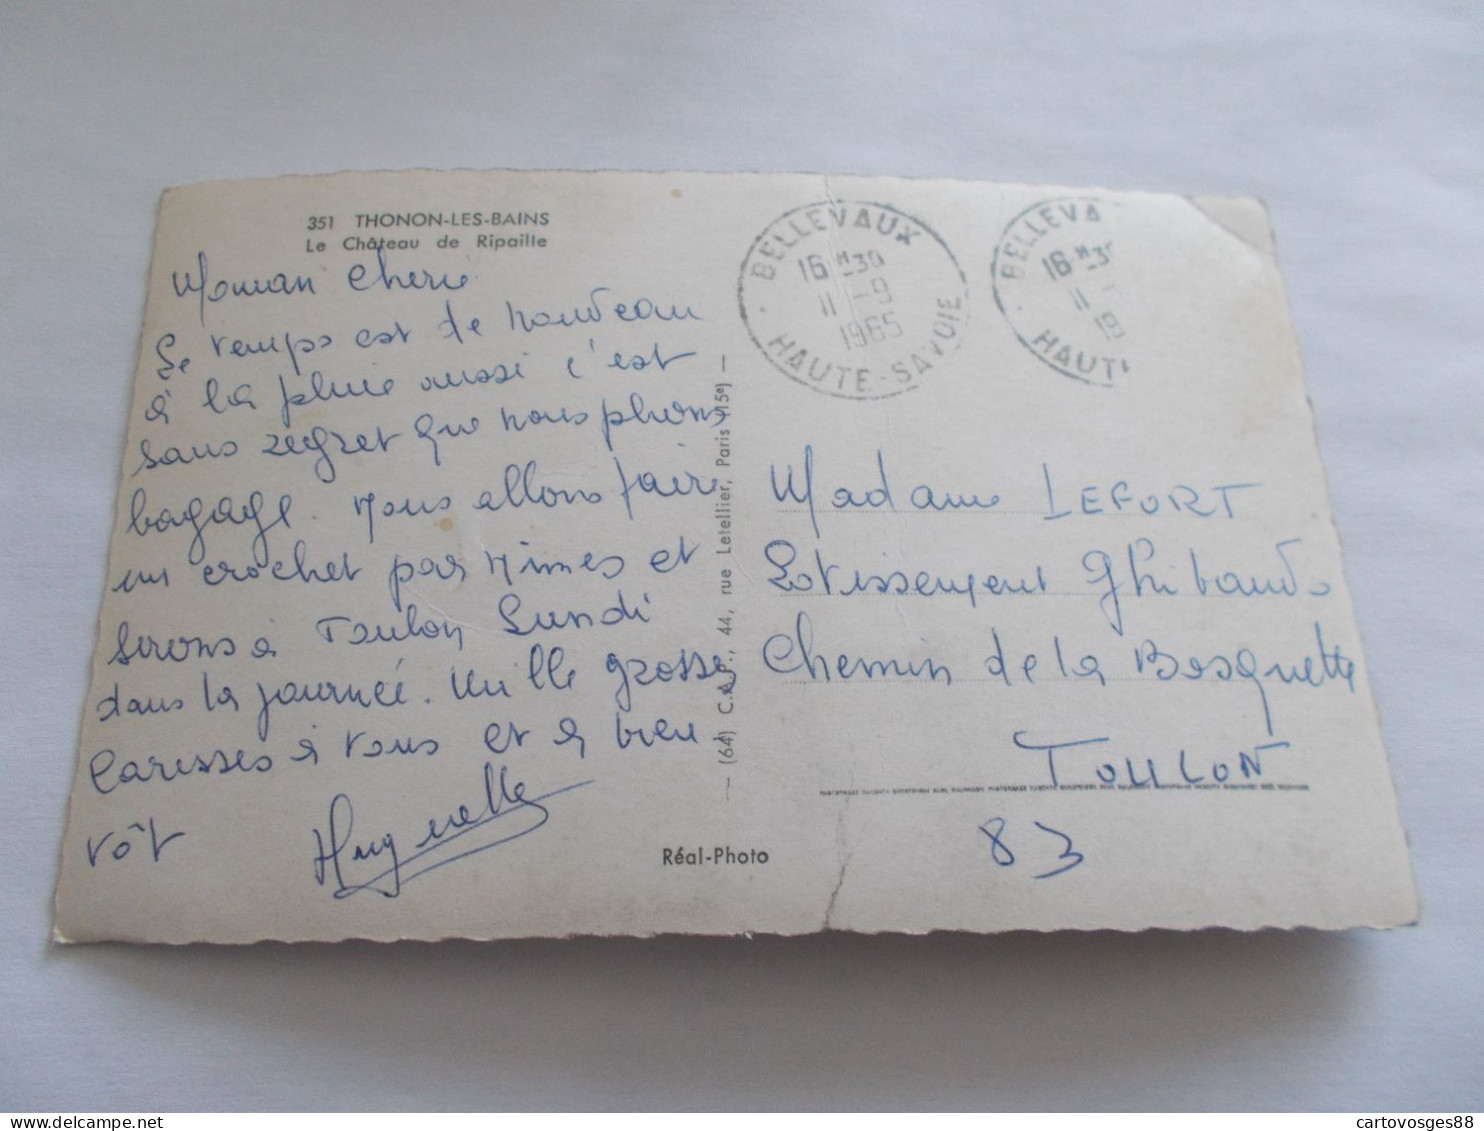 351 THONON-LES-BAINS
Le Château de Ripaille
Maman Cherie
Le temps est de nouveau
à la pluie aussi c'est
sans regret que nous plions
bagage. Nous allons faire
un crochet par Nimes et
serons à Toulon Lundi
dans la journée. Mille grosses
Caresses à tous et à bien
tôt
Huguette
(64) C.A.P., 44, rue Letellier, Paris (15e)
Réal-Photo
BELLEVAUX
16 H 30
11 -9
1965
HAUTE-SAVOIE
BELLEVA
16 H 3
11 -
19
HAUT
Madame LEFORT
Lotissement Ghibaudo
Chemin de la Bosquette
TOULON
83
cartovosges88